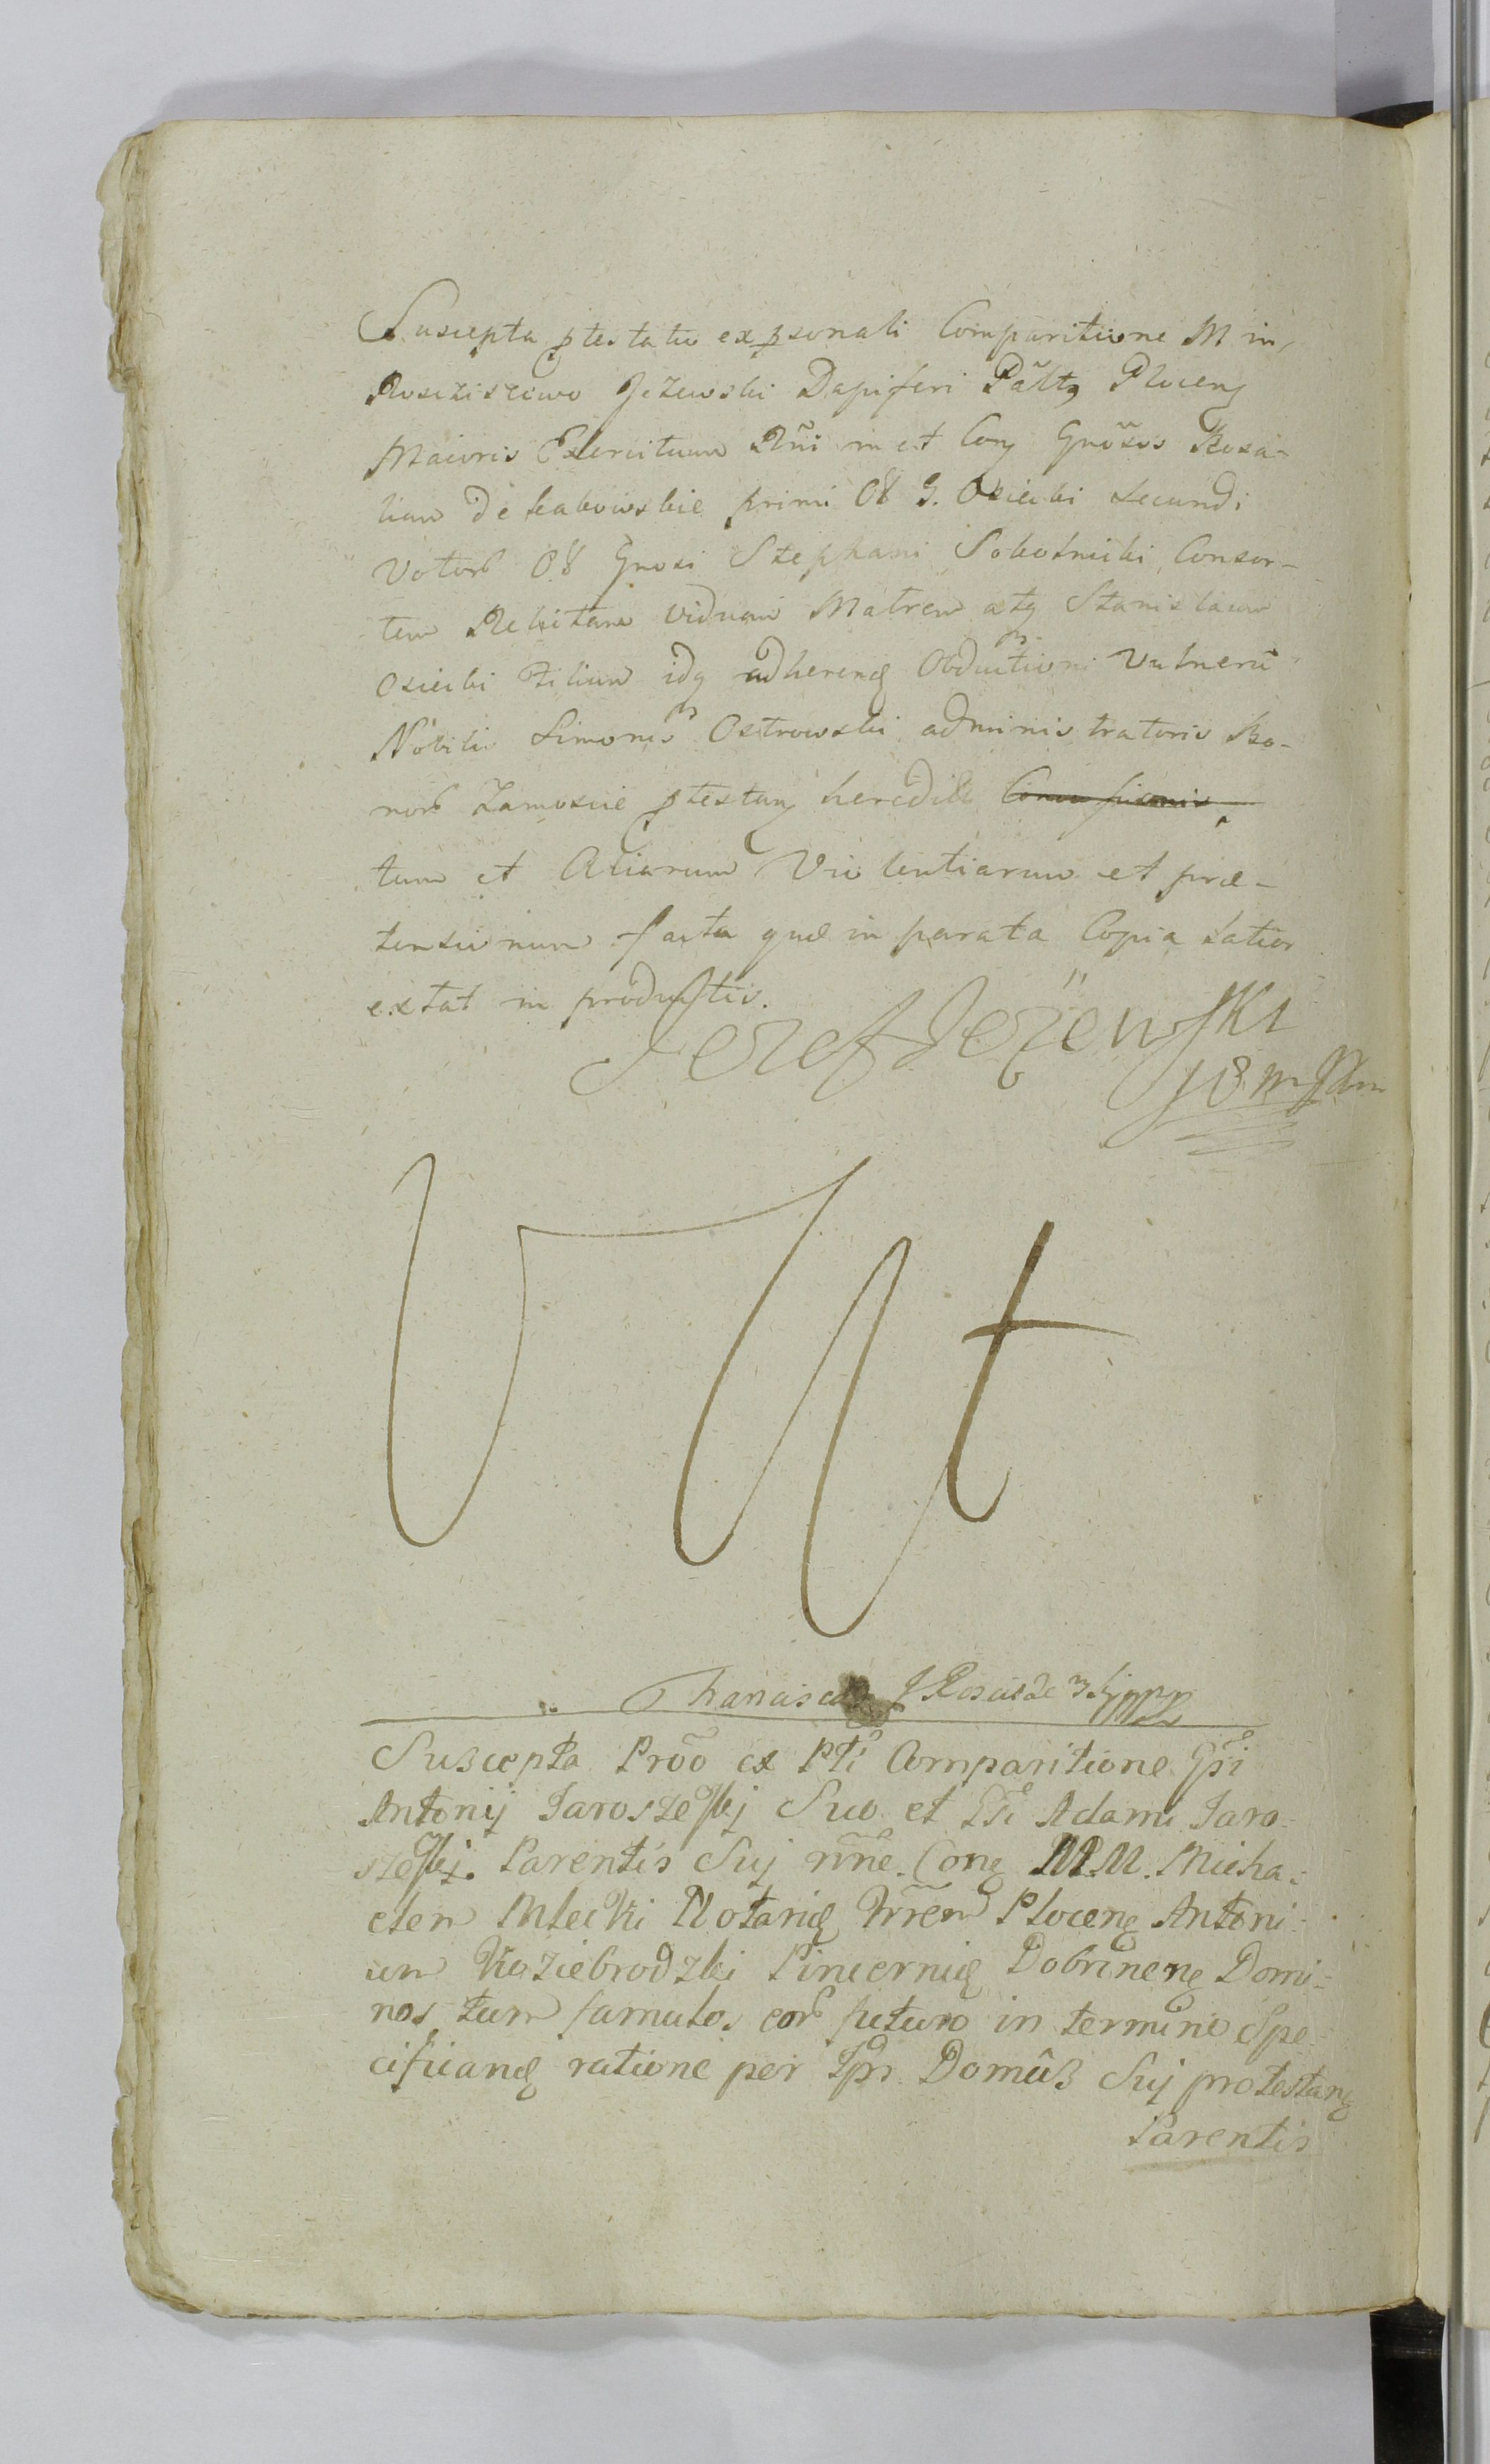 Suscepta ptestatio ex psonali Comparitione M in,
Rosciszewo Jeżewski Dapiferi Pãltg Ploceng
Maioris Exercituum Rñi in et Cong Gnõsos Rosa-
liam de primi O8 G. Osiecki Secundi
Votorb O8 Gnosi Stephani Sobotnicki, Consor-
tem Relictam Viduam Matrem atg Stanislaum
Osiecki Filium idg adhereng Obductioni Vulnerũ
Nobilis Simonis Ostrowski administratoris Bo-
norb Zamoscie ptestang heredit
tum et Aliarum Violentiarum et præ-
tensionum facta quæ in parata Copia Latior
extat in productis.
Jezef Jeżewski
Ut
Suscepta Prõo ex Pti Comparitione Gsi
Antonij Jaroszeskj Suo et Gsi Adami Jaro-
szeskj. Parentis Suj nñe. Cong MM. Micha-
elem Mlecki Notarig Trrem Ploceng Antoni-
um Koziebrodzki Pincernig Dobrineng Domi-
nos tum famulos eorb futuro in termino Spe-
cificang ratione per Ips Domûs Suj protestang
Parentis